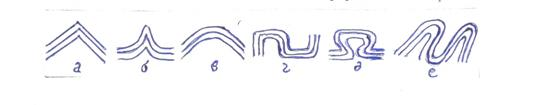 а б в г д е